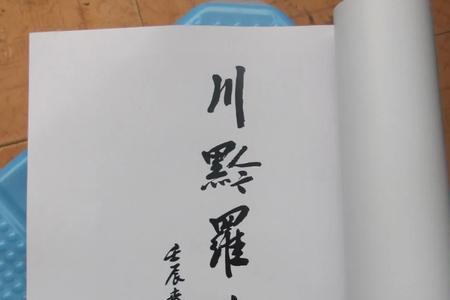 川黔羅
壬辰